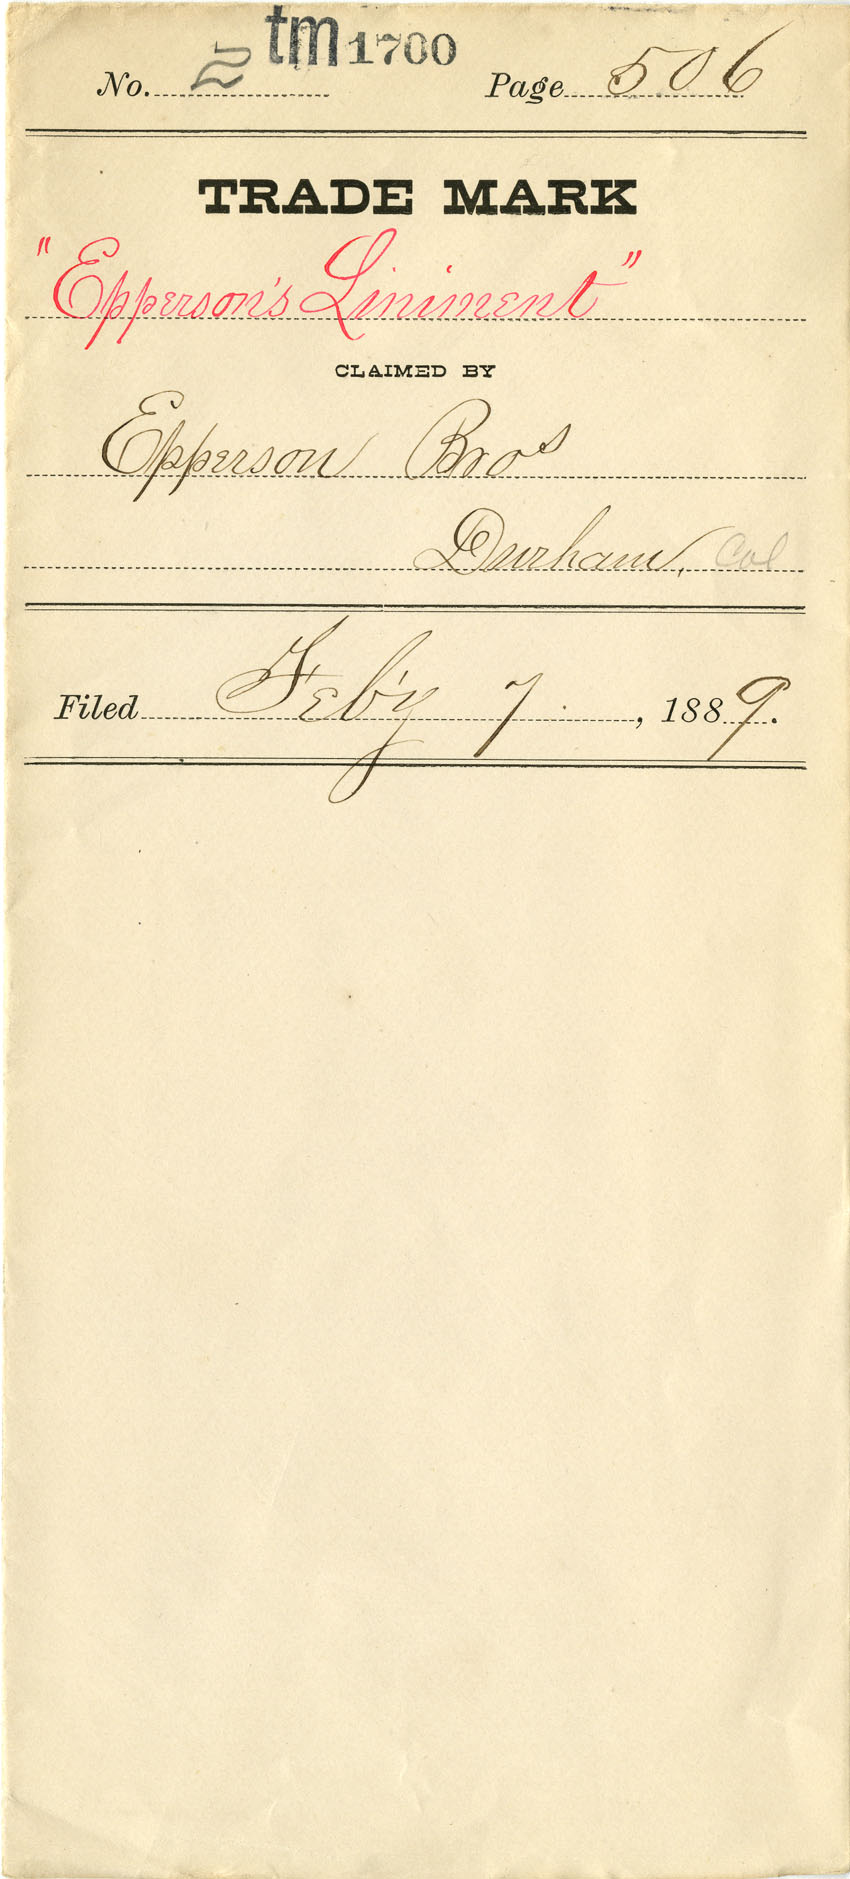 No. tm 1700 Page 506
TRADE MARK
"Epperson's Liniment"
CLAIMED BY
Epperson Bros
Durham, Col
Filed Feb'y 7, 1889.